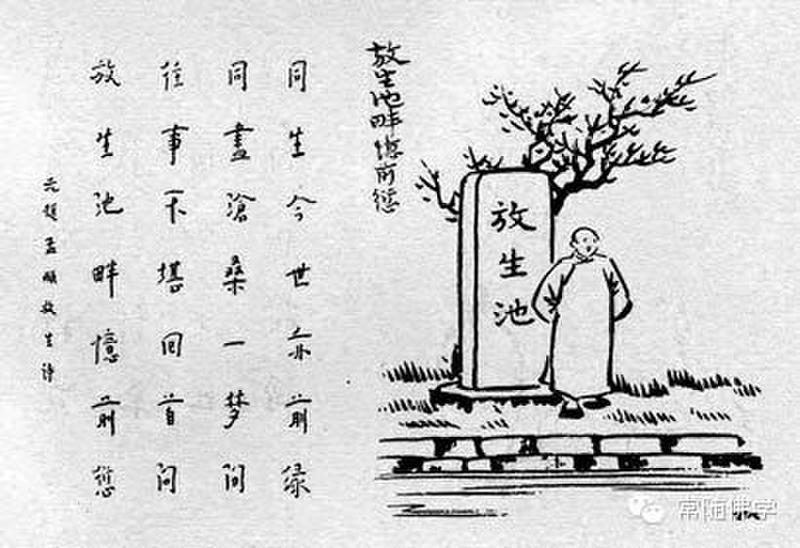 放生池
放生池畔憶前愆
同生今世亦前緣
同盡滄桑一梦間
往事不堪回首問
放生池畔憶前愆
元趙孟頫放生詩
常随佛学